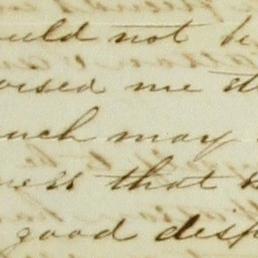 uld not be
me
uch may
ness that
good disp